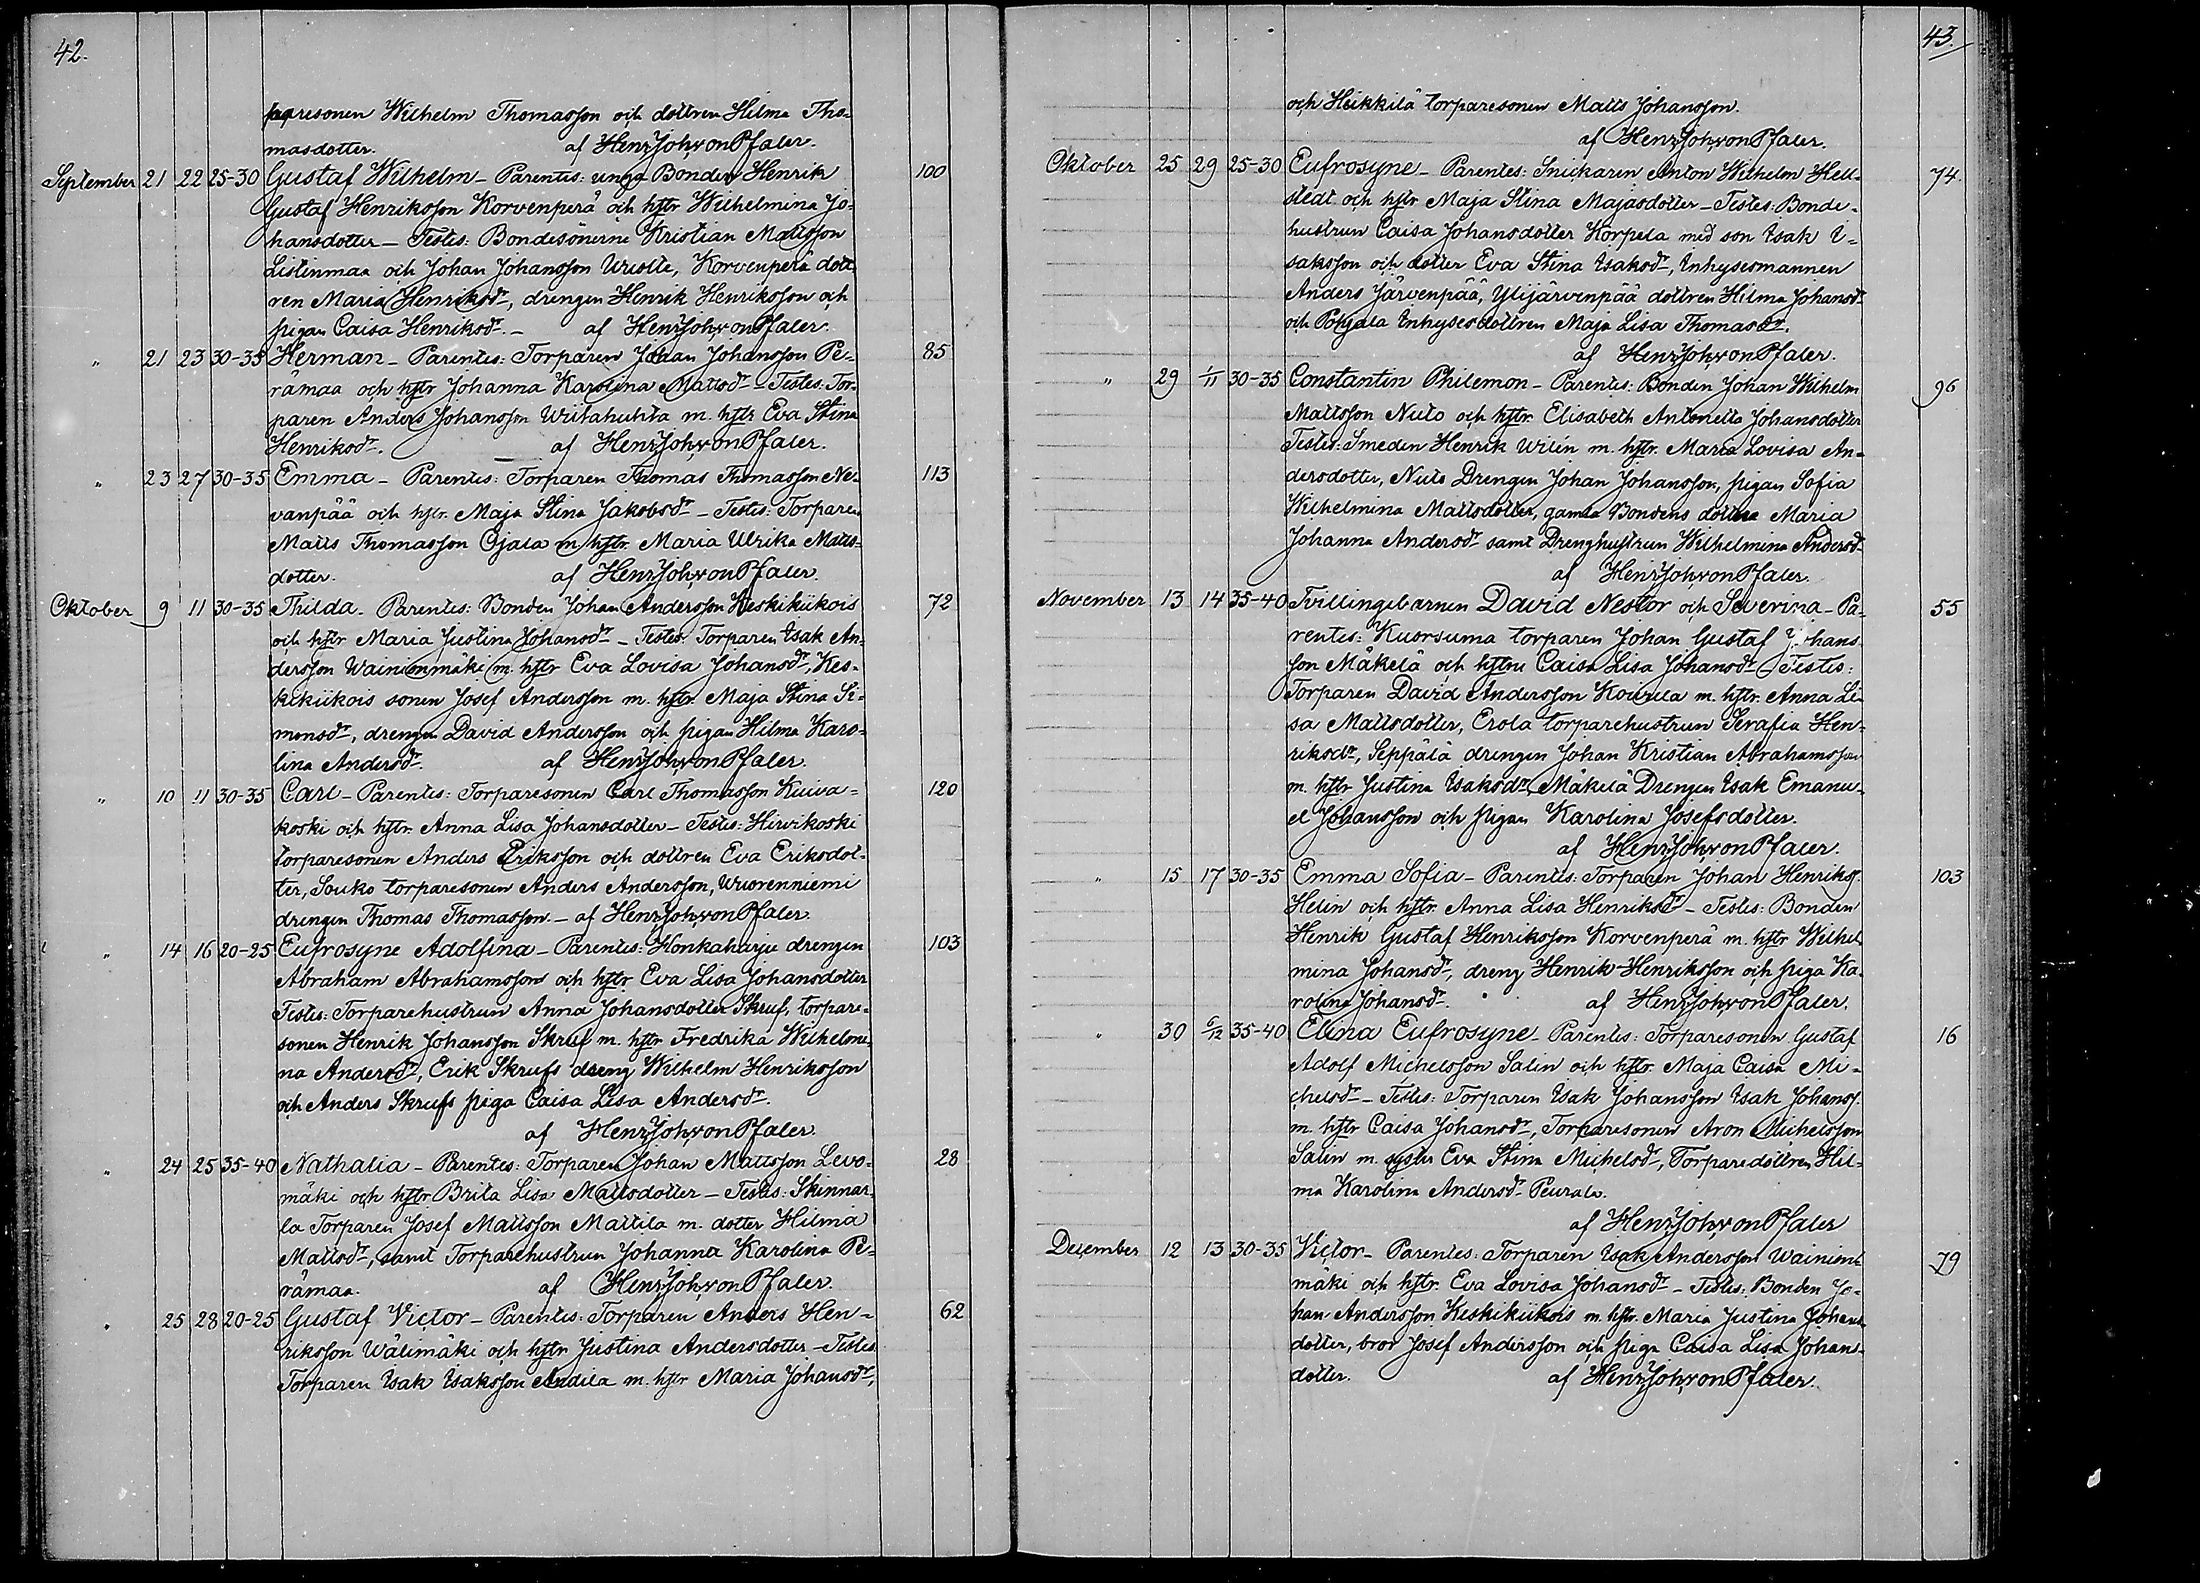 42.
paresonen Wilhelm Thomasson och dottren Hilma Tho-
masdotter. af Henr Joh von Pfaler.
September 21 22 25-30 Gustaf Wilhelm - Parentes: unga Bonden Henrik 100
Gustaf Henriksson Korvenperä och hstr Wilhelmina Jo-
hansdotter - Testes: Bondesönerne Kristian Mattsson
Listenmaa och Johan Johansson Uriolle, Korvenperä dott-
ren Maria Henriksdr, drengen Henrik Henriksson och
pigan Caisa Henriksdr. - af Henr Joh von Pfaler.
" 21 23 30-35 Herman - Parentes: Torparen Johan Johansson Pe- 85
rämaa och hstr Johanna Karolina Mattsdr - Testes: Tor-
paren Anders Johansson Wiitahuhta m. hstr Eva Stina
Henriksdr. af Henr Joh von Pfaler.
" 23 27 30-35 Emma - Parentes: Torparen Thomas Thomasson Ne- 113
vanpää och hstr. Maja Stina Jakobsdr - Testes: Torparen
Matts Thomasson Ojala m hstr. Maria Ulrika Matts-
dotter. af Henr Joh von Pfaler.
Oktober 9 11 30-35 Thilda - Parentes: Bonden Johan Andersson Keskikiikois 72
och hstr Maria Justina Johansdr - Testes: Torparen Isak An-
dersson Wainionmäki m. hstr Eva Lovisa Johansdr, Kes-
kikiikois sonen Josef Andersson m. hstr. Maja Stina Si-
monsdr, drengen David Andersson och pigan Hilma Karo-
lina Andersdr. af Henr Joh von Pfaler.
" 10 11 30-35 Carl - Parentes: Torparesonen Carl Thomasson Kuiva- 120
koski och hstr. Anna Lisa Johansdotter - Testes: Hirvikoski
torparesonen Anders Eriksson och dottren Eva Eriksdot-
ter, Souko torparesonen Anders Andersson, Wuorenniemi
drengen Thomas Thomasson. - af Henr Joh von Pfaler.
" 14 16 20-25 Eufrosyne Adolfina - Parentes: Honkaharju drengen 103
Abraham Abrahamsson och hstr Eva Lisa Johansdotter
Testes: Torparehustrun Anna Johansdotter Skruf, torpare-
sonen Henrik Johansson Skruf m. hstr Fredrika Wilhelmi-
na Andersdr, Erik Skrufs dreng Wilhelm Henriksson
och Anders Skrufs piga Caisa Lisa Andersdr.
af Henr Joh von Pfaler.
" 24 25 35-40 Nathalia - Parentes: Torparen Johan Mattsson Levo- 28
mäki och hstr Brita Lisa Mattsdotter - Testes: Skinnar-
la Torparen Josef Mattsson Mattila m. dotter Hilma
Mattsdr, samt Torparehustrun Johanna Karolina Pe-
rämaa. af Henr Joh von Pfaler.
" 25 28 20-25 Gustaf Victor - Parentes: Torparen Anders Hen- 62
riksson Wälimäki och hstr Justina Andersdotter - Testes
Torparen Isak Isaksson Andila m. hstr Maria Johansdr,
43.
och Heikkilä torparesonen Matts Johansson.
af Henr Joh von Pfaler.
Oktober 25 29 25-30 Eufrosyne - Parentes: Snickaren Anton Wilhelm Hell- 74.
stedt och hstr Maja Stina Majasdotter - Testes: Bonde-
hustrun Caisa Johansdotter Korpela med son Isak I-
saksson och dotter Eva Stina Isaksdr, Inhysesmannen
Anders Järvenpää, Ylijärvenpää dottren Hilma Johansdr
och Pohjala Inhysesdottren Maja Lisa Thomasdr.
af Henr Joh von Pfaler.
" 29 1/11 30-35 Constantin Philemon - Parentes: Bonden Johan Wilhelm 96
Mattsson Nuto och hstr. Elisabeth Antonetta Johansdotter
Testes: Smeden Henrik Wilén m. hstr. Maria Lovisa An-
dersdotter, Nuto Drengen Johan Johansson, pigan Sofia
Wilhelmina Mattsdotter, gamla Bondens dotter Maria
Johanna Andersdr samt Drenghustrun Wilhelmina Andersdr
af Henr Joh von Pfaler.
November 13 14 35-40 Tvillingebarnen David Nestor och Severina - Pa- 55
rentes: Kuorsuma torparen Johan Gustaf Johans-
son Mäkelä och hstru Caisa Lisa Johansdr Testes:
Torparen David Andersson Kourila m. hstr. Anna Li-
sa Mattsdotter, Erola torparehustrun Serafia Hen-
riksdr, Seppälä drengen Johan Kristian Abrahamsson
m. hstr Justina Isaksdr, Mäkelä Drengen Isak Emanu-
el Johansson och pigan Karolina Josefsdotter.
af Henr Joh von Pfaler.
" 15 17 30-35 Emma Sofia - Parentes: Torparen Johan Henrikss. 103
Helin och hstr. Anna Lisa Henriksdr - Testes: Bonden
Henrik Gustaf Henriksson Korvenperä m. hstr Wilhel
mina Johansdr, dreng Henrik Henriksson och piga Ka-
rolina Johansdr. af Henr Joh von Pfaler.
" 30 /12 35-40 Elina Eufrosyne - Parentes: Torparesonen Gustaf 16
Adolf Michelsson Salin och hstr. Maja Caisa Mi-
chelsdr - Testes: Torparen Isak Johansson Isak Johanss.
m. hstr Caisa Johansdr, Torparesonen Aron Michelsson
Salin m. syster Eva Stina Michelsdr, Torparedottren Hil-
ma Karolina Andersdr Peurala.
af Henr Joh von Pfaler
December 12 13 30-35 Victor - Parentes: Torparen Isak Andersson Wainion- 79
mäki och hstr. Eva Lovisa Johansdr - Testes: Bonden Jo-
han Andersson Keskikiikois m. hstr. Maria Justina Johans
dotter, bror Josef Andersson och piga Caisa Lisa Johans-
dotter. af Henr Joh von Pfaler.